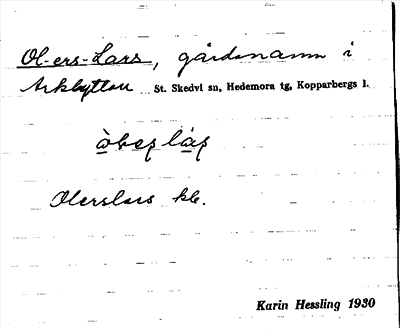 Ol-ers-Lars, gårdsnamn i
Arkhyttan St. Skedvi sn, Hedemora tg, Kopparbergs l.
Olerslars kb.
Karin Hessling 1930